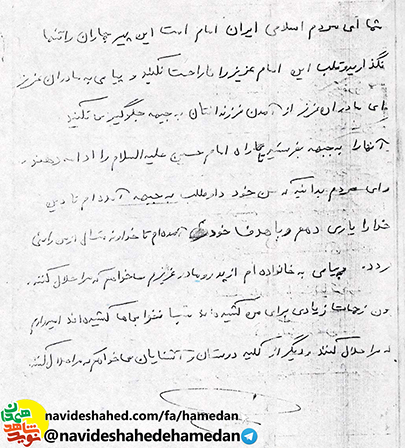 شما ای مردم اسلامی ایران امام است این پیر جماران را تنها
نگذارید و قلب این امام عزیز را ناراحت نکنید و پیامی به مادران عزیز
ای مادران عزیز از آمدن فرزندانتان به جبهه جلوگیری نکنید
آنها را به جبهه بفرستید تا راه امام حسین علیه السلام را ادامه دهند و
و ای مردم بدانید که من خود داوطلب به جبهه آمده ام تا دین
خدا را یاری دهم و با هدف خود آمده ام تا خداوند متعال از من راضی
گردد. و پیامی به خانواده ام از پدر و مادر عزیزم میخواهم که مرا حلال کنند.
چون زحمات زیادی برای من کشیده اند و شبها بیخوابیها کشیده اند امیدوارم
که مرا حلال کنند و دیگر از کلیه دوستان و آشنایان میخواهم که مرا حلال کنند
navideshahed.com/fa/hamedan
@navideshahedehamedan
نوید شاهد
همدان